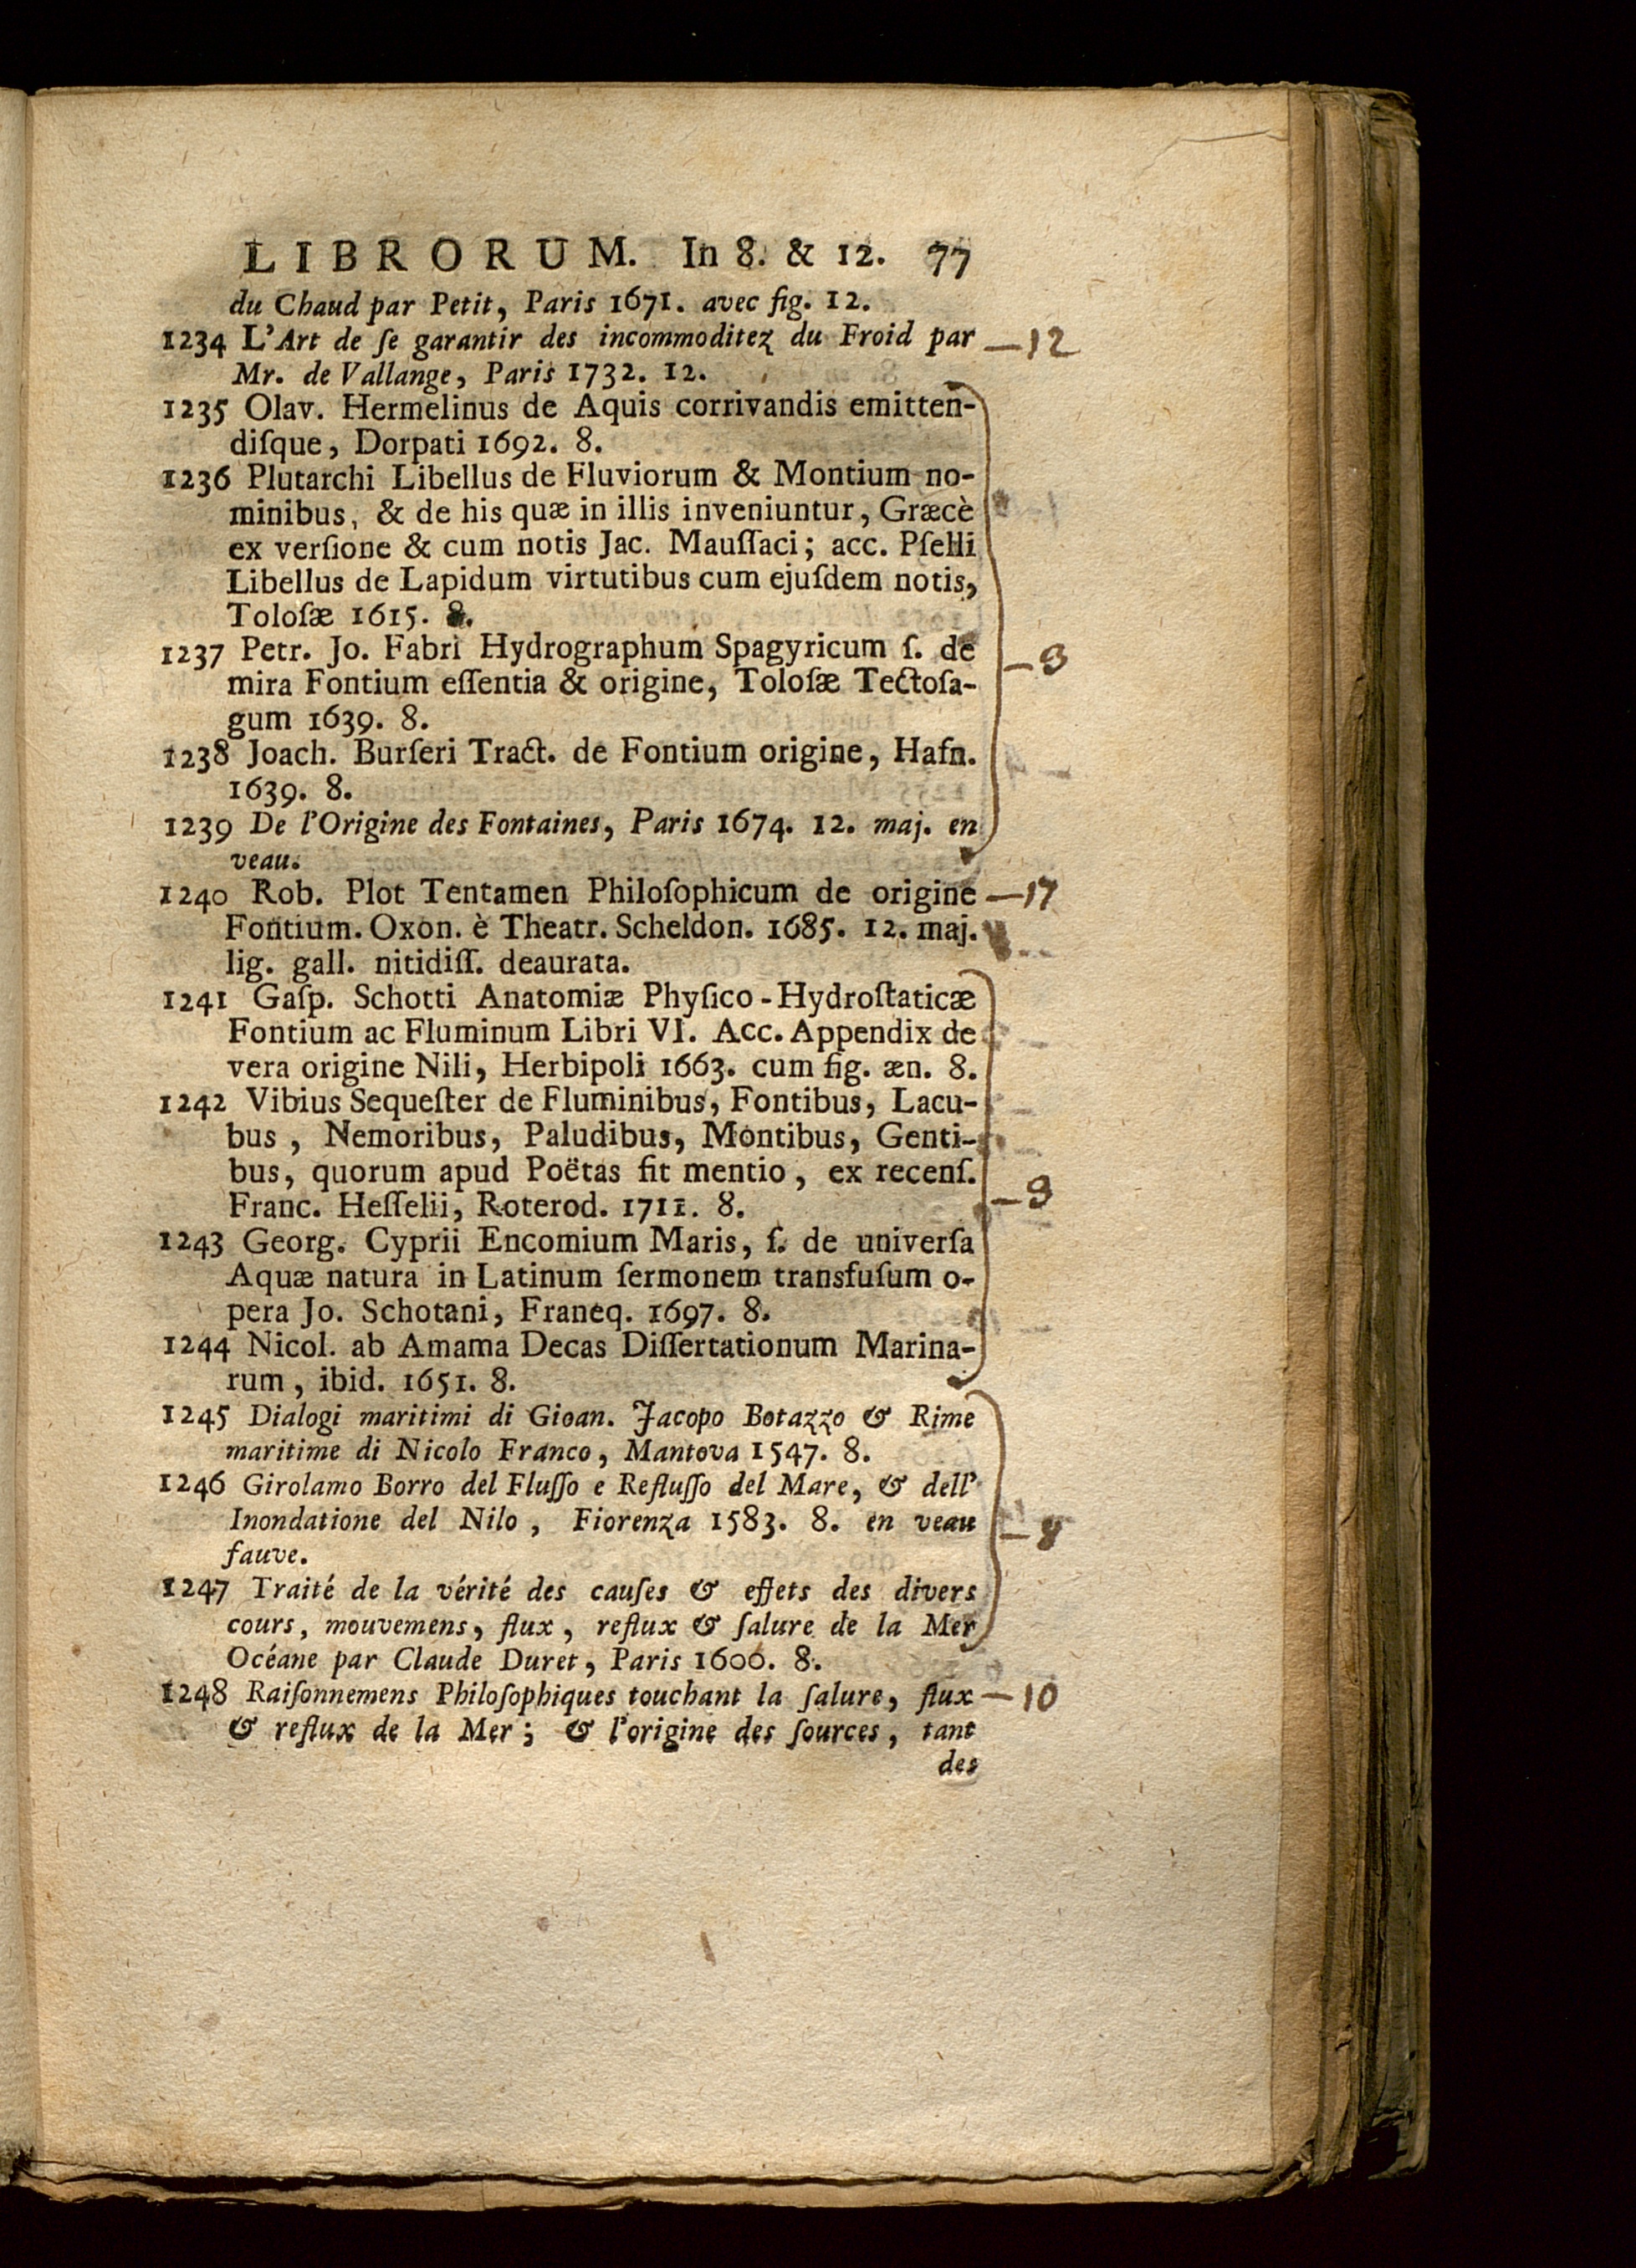 LIBRORUM. In 8. & 12. 77
du Chaud par Petit, Paris 1671. avec fig. 12.
1234 L'Art de ſe garantir des incommoditez du Froid par —12
Mr. de Vallange, Paris 1732. 12.
1235 Olav. Hermelinus de Aquis corrivandis emitten-
diſque, Dorpati 1692. 8.
1236 Plutarchi Libellus de Fluviorum & Montium no-
minibus, & de his quæ in illis inveniuntur, Græcè
ex verſione & cum notis Jac. Mauſſaci; acc. Pſelli
Libellus de Lapidum virtutibus cum ejuſdem notis,
Toloſæ 1615. 8.
1237 Petr. Jo. Fabri Hydrographum Spagyricum ſ. de
mira Fontium eſſentia & origine, Toloſæ Tectoſa-
gum 1639. 8.
1238 Joach. Burſeri Tract. de Fontium origine, Hafn.
1639. 8.
1239 De l'Origine des Fontaines, Paris 1674. 12. maj. en
veau.
1240 Rob. Plot Tentamen Philoſophicum de origine —17
Fontium. Oxon. è Theatr. Scheldon. 1685. 12. maj.
lig. gall. nitidiſſ. deaurata.
1241 Gaſp. Schotti Anatomiæ Phyſico-Hydroſtaticæ
Fontium ac Fluminum Libri VI. Acc. Appendix de
vera origine Nili, Herbipoli 1663. cum fig. æn. 8.
1242 Vibius Sequeſter de Fluminibus, Fontibus, Lacu-
bus, Nemoribus, Paludibus, Montibus, Genti-
bus, quorum apud Poëtas fit mentio, ex recenſ.
Franc. Heſſelii, Roterod. 1711. 8.
1243 Georg. Cyprii Encomium Maris, ſ. de univerſa
Aquæ natura in Latinum ſermonem transfuſum o-
pera Jo. Schotani, Franeq. 1697. 8.
1244 Nicol. ab Amama Decas Diſſertationum Marina-
rum, ibid. 1651. 8.
1245 Dialogi maritimi di Gioan. Jacopo Botazzo & Rime
maritime di Nicolo Franco, Mantova 1547. 8.
1246 Girolamo Borro del Fluſſo e Refluſſo del Mare, & dell'
Inondatione del Nilo, Fiorenza 1583. 8. en veau —8
fauve.
1247 Traité de la vérité des cauſes & effets des divers
cours, mouvemens, flux, reflux & ſalure de la Mer
Océane par Claude Duret, Paris 1600. 8.
1248 Raiſonnemens Philoſophiques touchant la ſalure, flux —10
& reflux de la Mer; & l'origine des ſources, tant
des